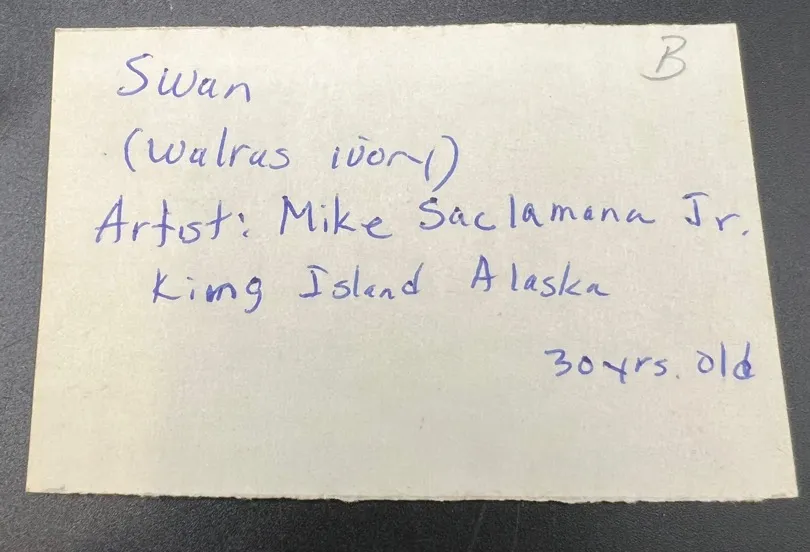 B
Swan
(Walrus ivory)
Artist: Mike Saclamana Jr.
King Island Alaska
30 yrs. old